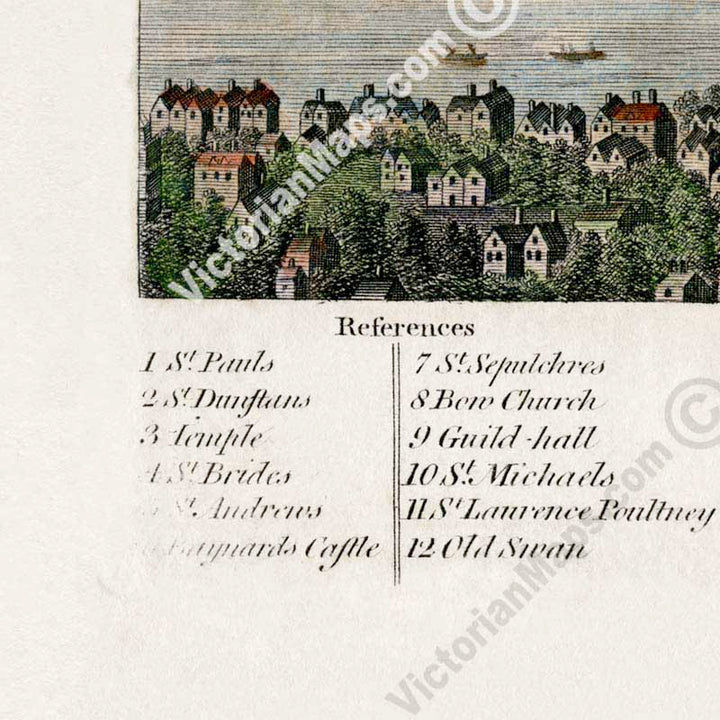 VictorianMaps.com ©
References
1 St. Pauls
2 St. Dunſtans
3 Temple
4 St. Brides
5 St. Andrews
6 Baynards Caſtle
7 St. Sepulchres
8 Bow Church
9 Guild-hall
10 St. Michaels
11 St Laurence Poultney
12 Old Swan
VictorianMaps.com ©